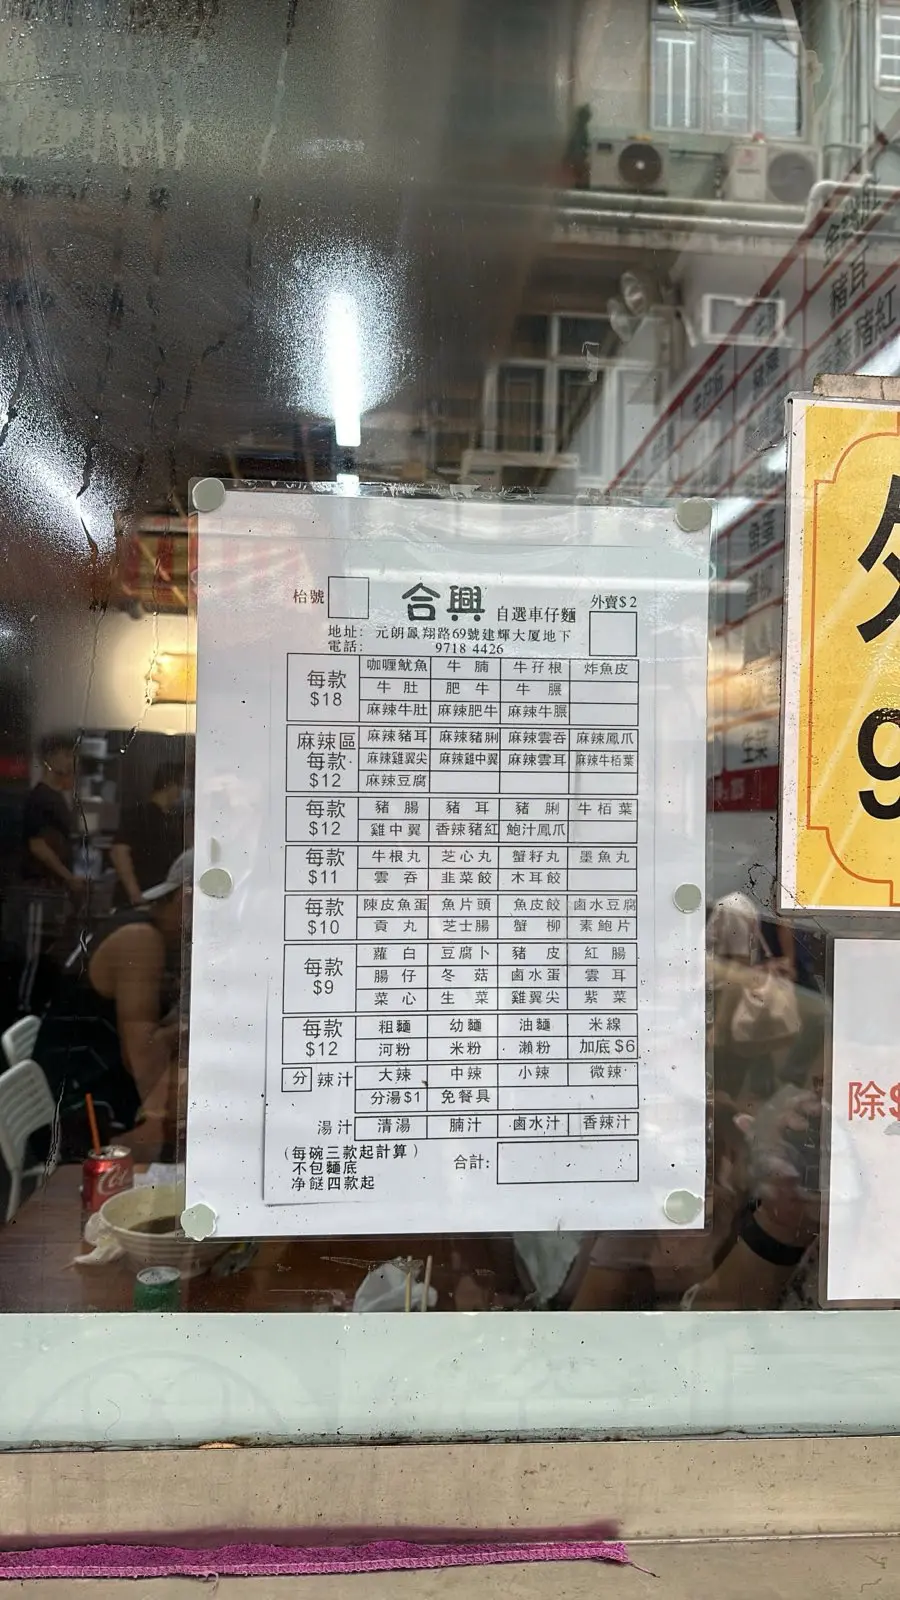 枱號
合興 自選車仔麵
外賣$2
地址: 元朗鳳翔路69號建輝大厦地下
電話: 9718 4426
每款 $18
咖喱魷魚 牛腩 牛孖根 炸魚皮
牛肚 肥牛 牛𦟌
麻辣牛肚 麻辣肥牛 麻辣牛𦟌
麻辣區 每款 $12
麻辣豬耳 麻辣豬脷 麻辣雲吞 麻辣鳳爪
麻辣雞翼尖 麻辣雞中翼 麻辣雲耳 麻辣牛栢葉
麻辣豆腐
每款 $12
豬腸 豬耳 豬脷 牛栢葉
雞中翼 香辣豬紅 鮑汁鳳爪
每款 $11
牛根丸 芝心丸 蟹籽丸 墨魚丸
雲吞 韭菜餃 木耳餃
每款 $10
陳皮魚蛋 魚片頭 魚皮餃 鹵水豆腐
貢丸 芝士腸 蟹柳 素鮑片
每款 $9
蘿白 豆腐卜 豬皮 紅腸
腸仔 冬菇 鹵水蛋 雲耳
菜心 生菜 雞翼尖 紫菜
每款 $12
粗麵 幼麵 油麵 米線
河粉 米粉 瀨粉 加底$6
分 辣汁 大辣 中辣 小辣 微辣
分湯$1 免餐具
湯汁 清湯 腩汁 鹵水汁 香辣汁
(每碗三款起計算)
不包麵底
净餸四款起
合計:
除$
豬耳
豬紅